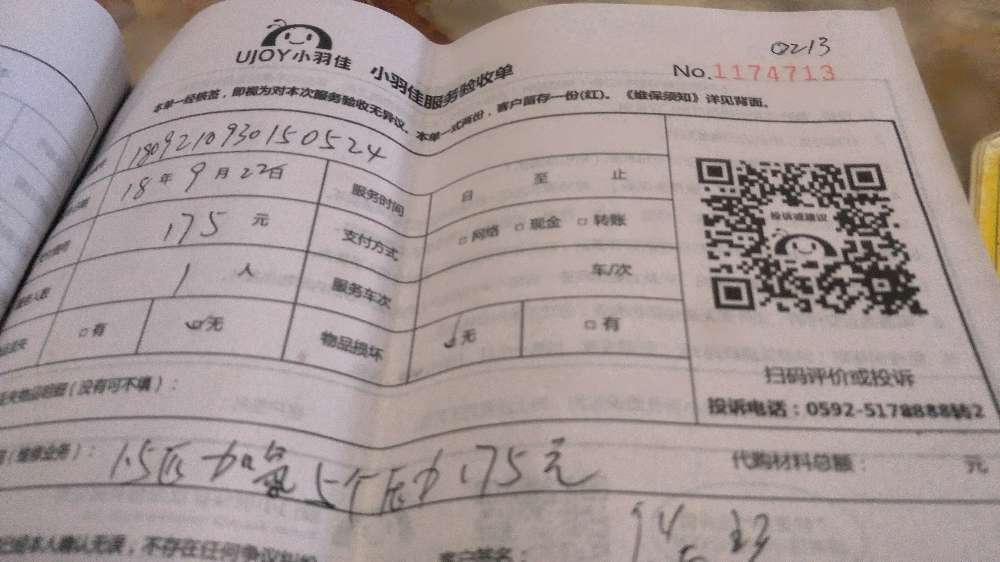 0213
UJOY小羽佳 小羽佳服务验收单
No.1174713
本单一经核签，即视为对本次服务验收无异议。本单一式两份，客户留存一份(红)。《维保须知》详见背面。
180921093015 0524
18年9月22日 服务时间 日 至 止
175 元 支付方式 □网络 □现金 □转账
1 人 服务车次 车/次
□有 无 物品损坏 无 □有
投诉或建议
扫码评价或投诉
投诉电话：0592-5178888转2
(没有可不填)：
(维修业务)：1.5匹加氟5个压力175元 代购材料总额： 元
本人确认无误，不存在任何争议
客户签名：